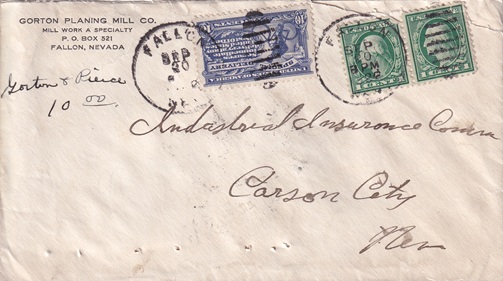 GORTON PLANING MILL CO.
MILL WORK A SPECIALTY
P. O. BOX 521
FALLON, NEVADA
Gorton & Pierce
10 00.
FALLON
SEP
20
NEV
Industrial Insurance Comm
Carson City
Nev